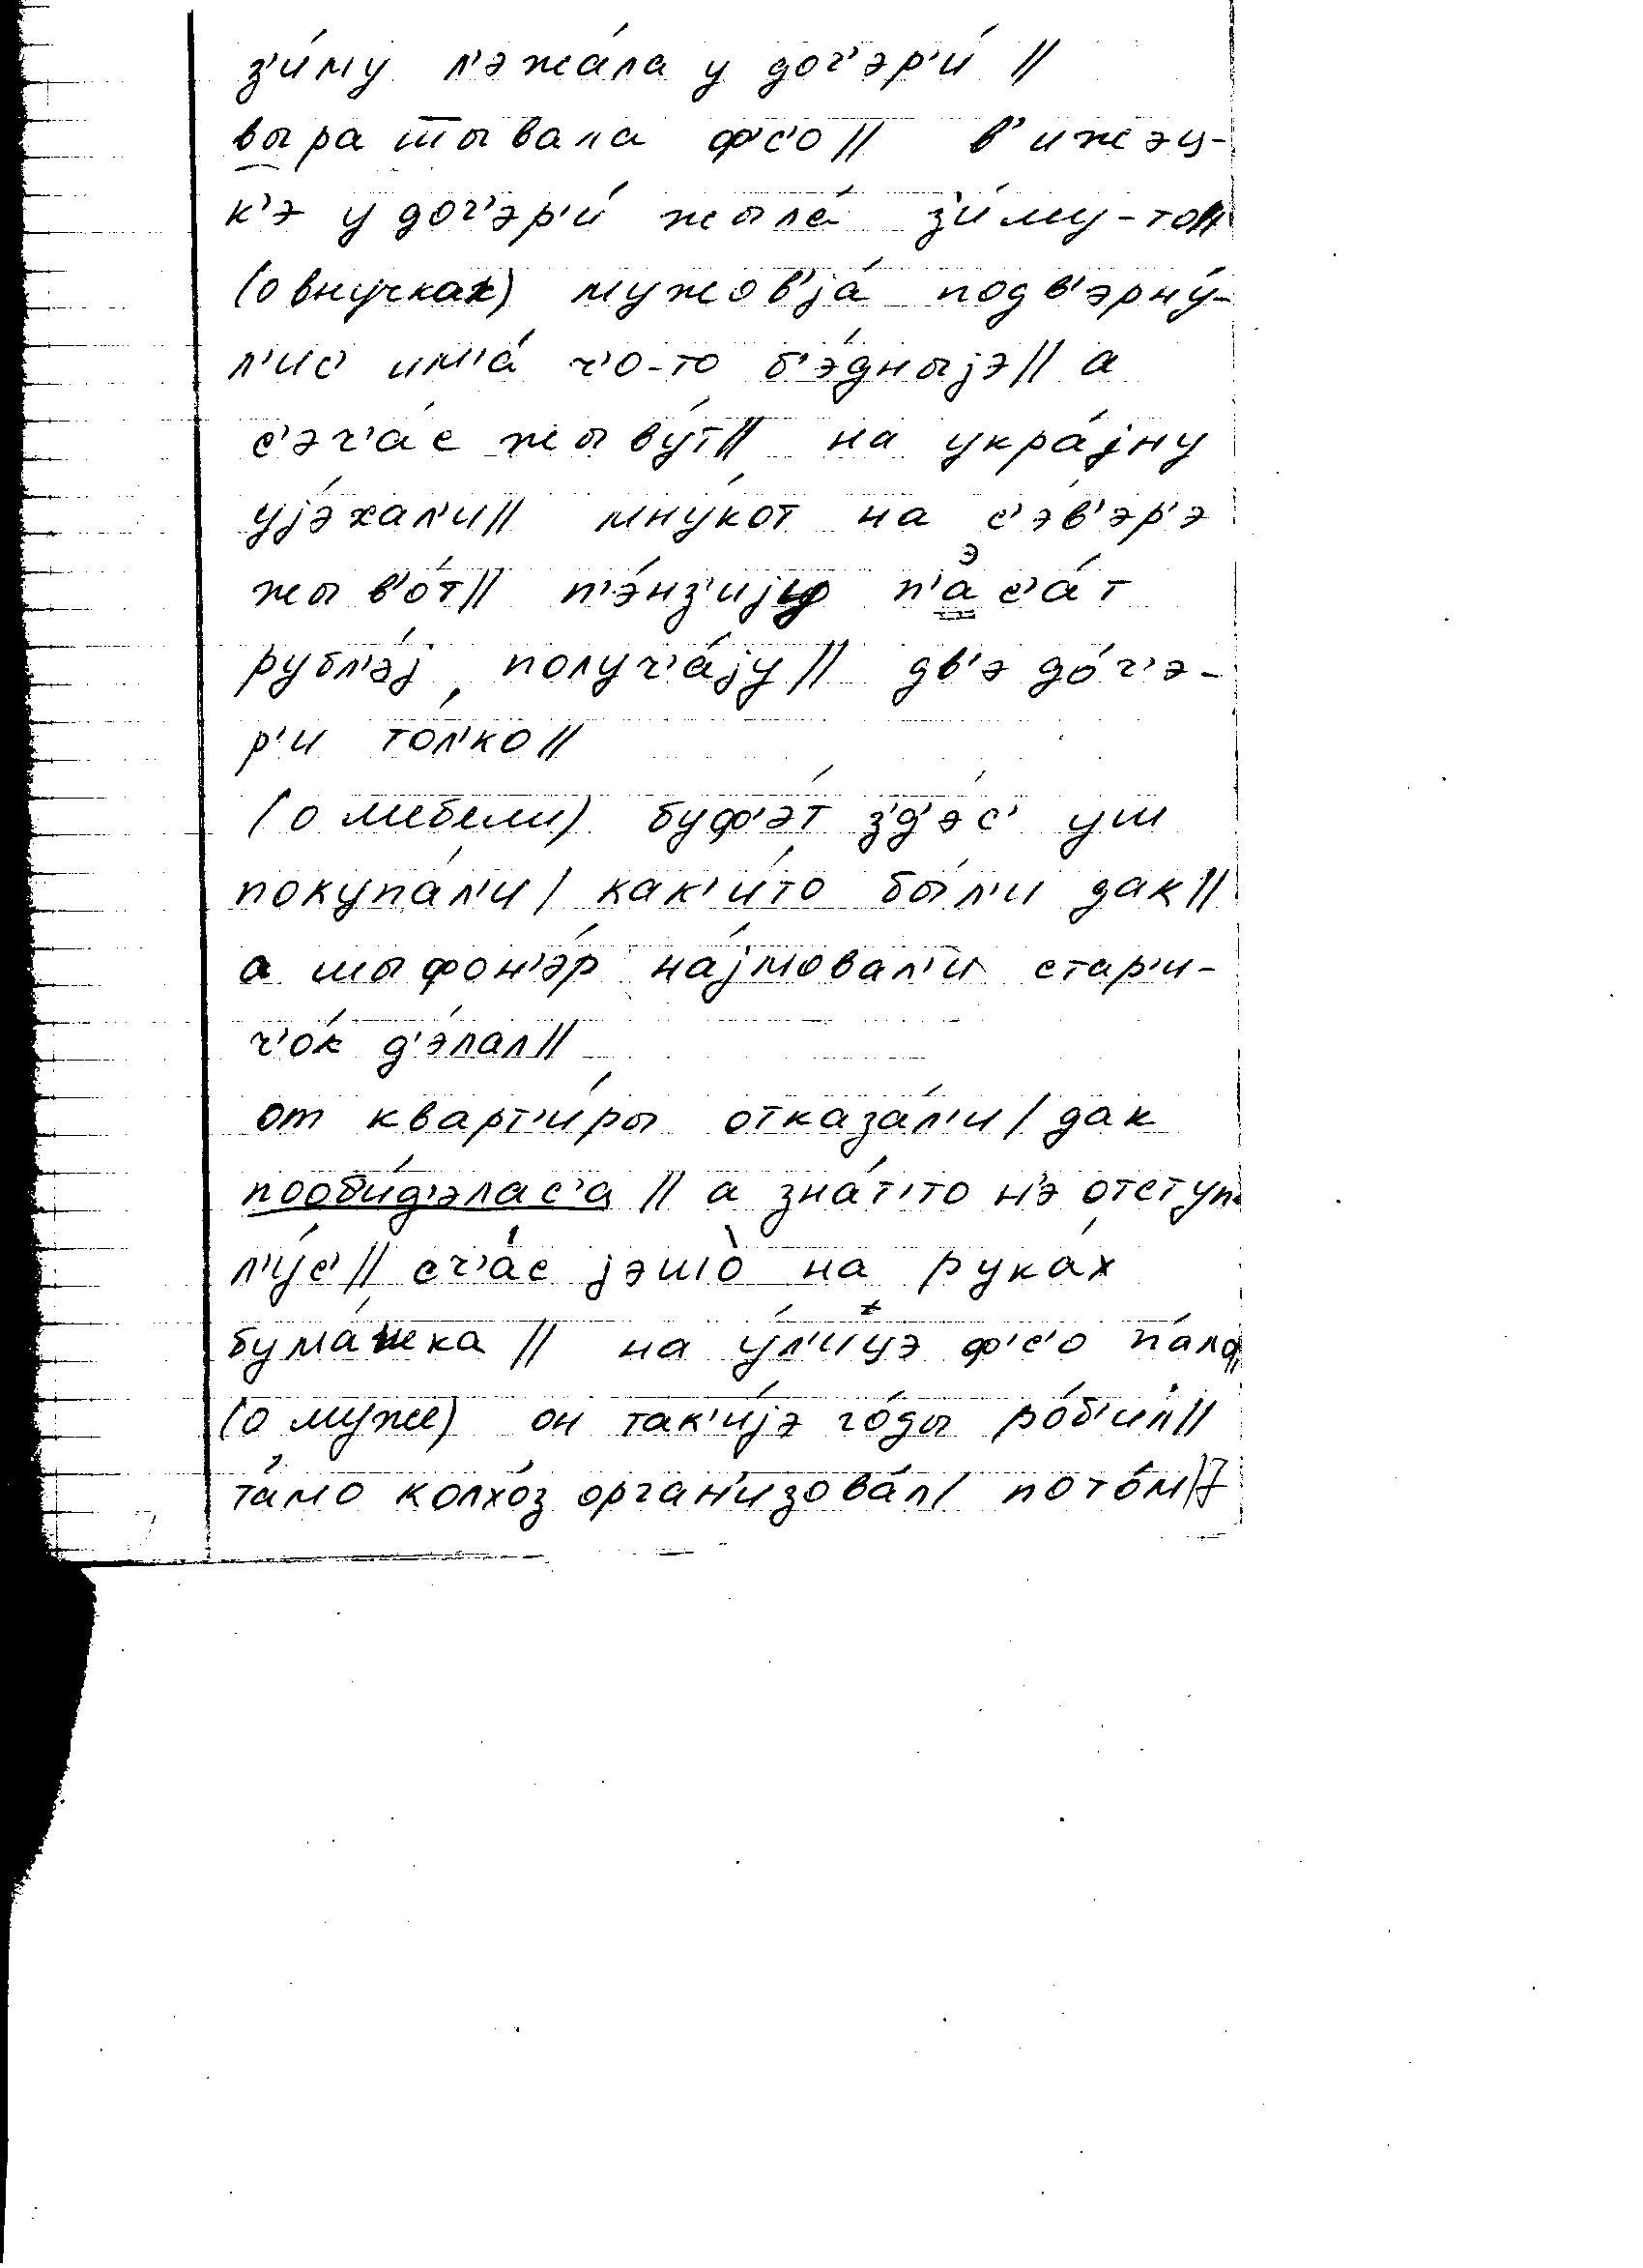 з'и́му л'эжа́ла у доч'эр'и́ //
выратывала ф'с'о // в'ижэц-
к'э у доч'эр'и́ жыла́ з'и́му-то //
(о внучках) мужов'jа́ подв'эрну́-
л'ис' им'а́ ч'о-то б'э́дныjэ // а
с'эч'а́с жыву́т // на укра́jну
уjэ́хал'и // мну́кот на с'э́в'эр'э
жыв'о́т // п'э́нз'иjу п'а̊с'а́т
рубл'э́j получ'а́jу // дв'э до́ч'э-
р'и то́л'ко //
(о мебели) буф'э́т з'д'э́с' уш
покупа́л'и / как'и́то бы́л'и дак //
а шыфон'э́р на́jмовал'и стар'и-
ч'о́к д'э́лал //
от кварт'и́ры отказа́л'и / дак
пооби́д'элас'а // а зна́т'то н'э отступ-
л'у́с' // сч'а́с jэшо̀ на рука́х
бума́шка // на у́л'ицэ ф'с'о па́ло //
(о муже) он так'и́jэ го́ды ро́б'ил //
та́мо колхо́з орган'изова́л / пото́м //